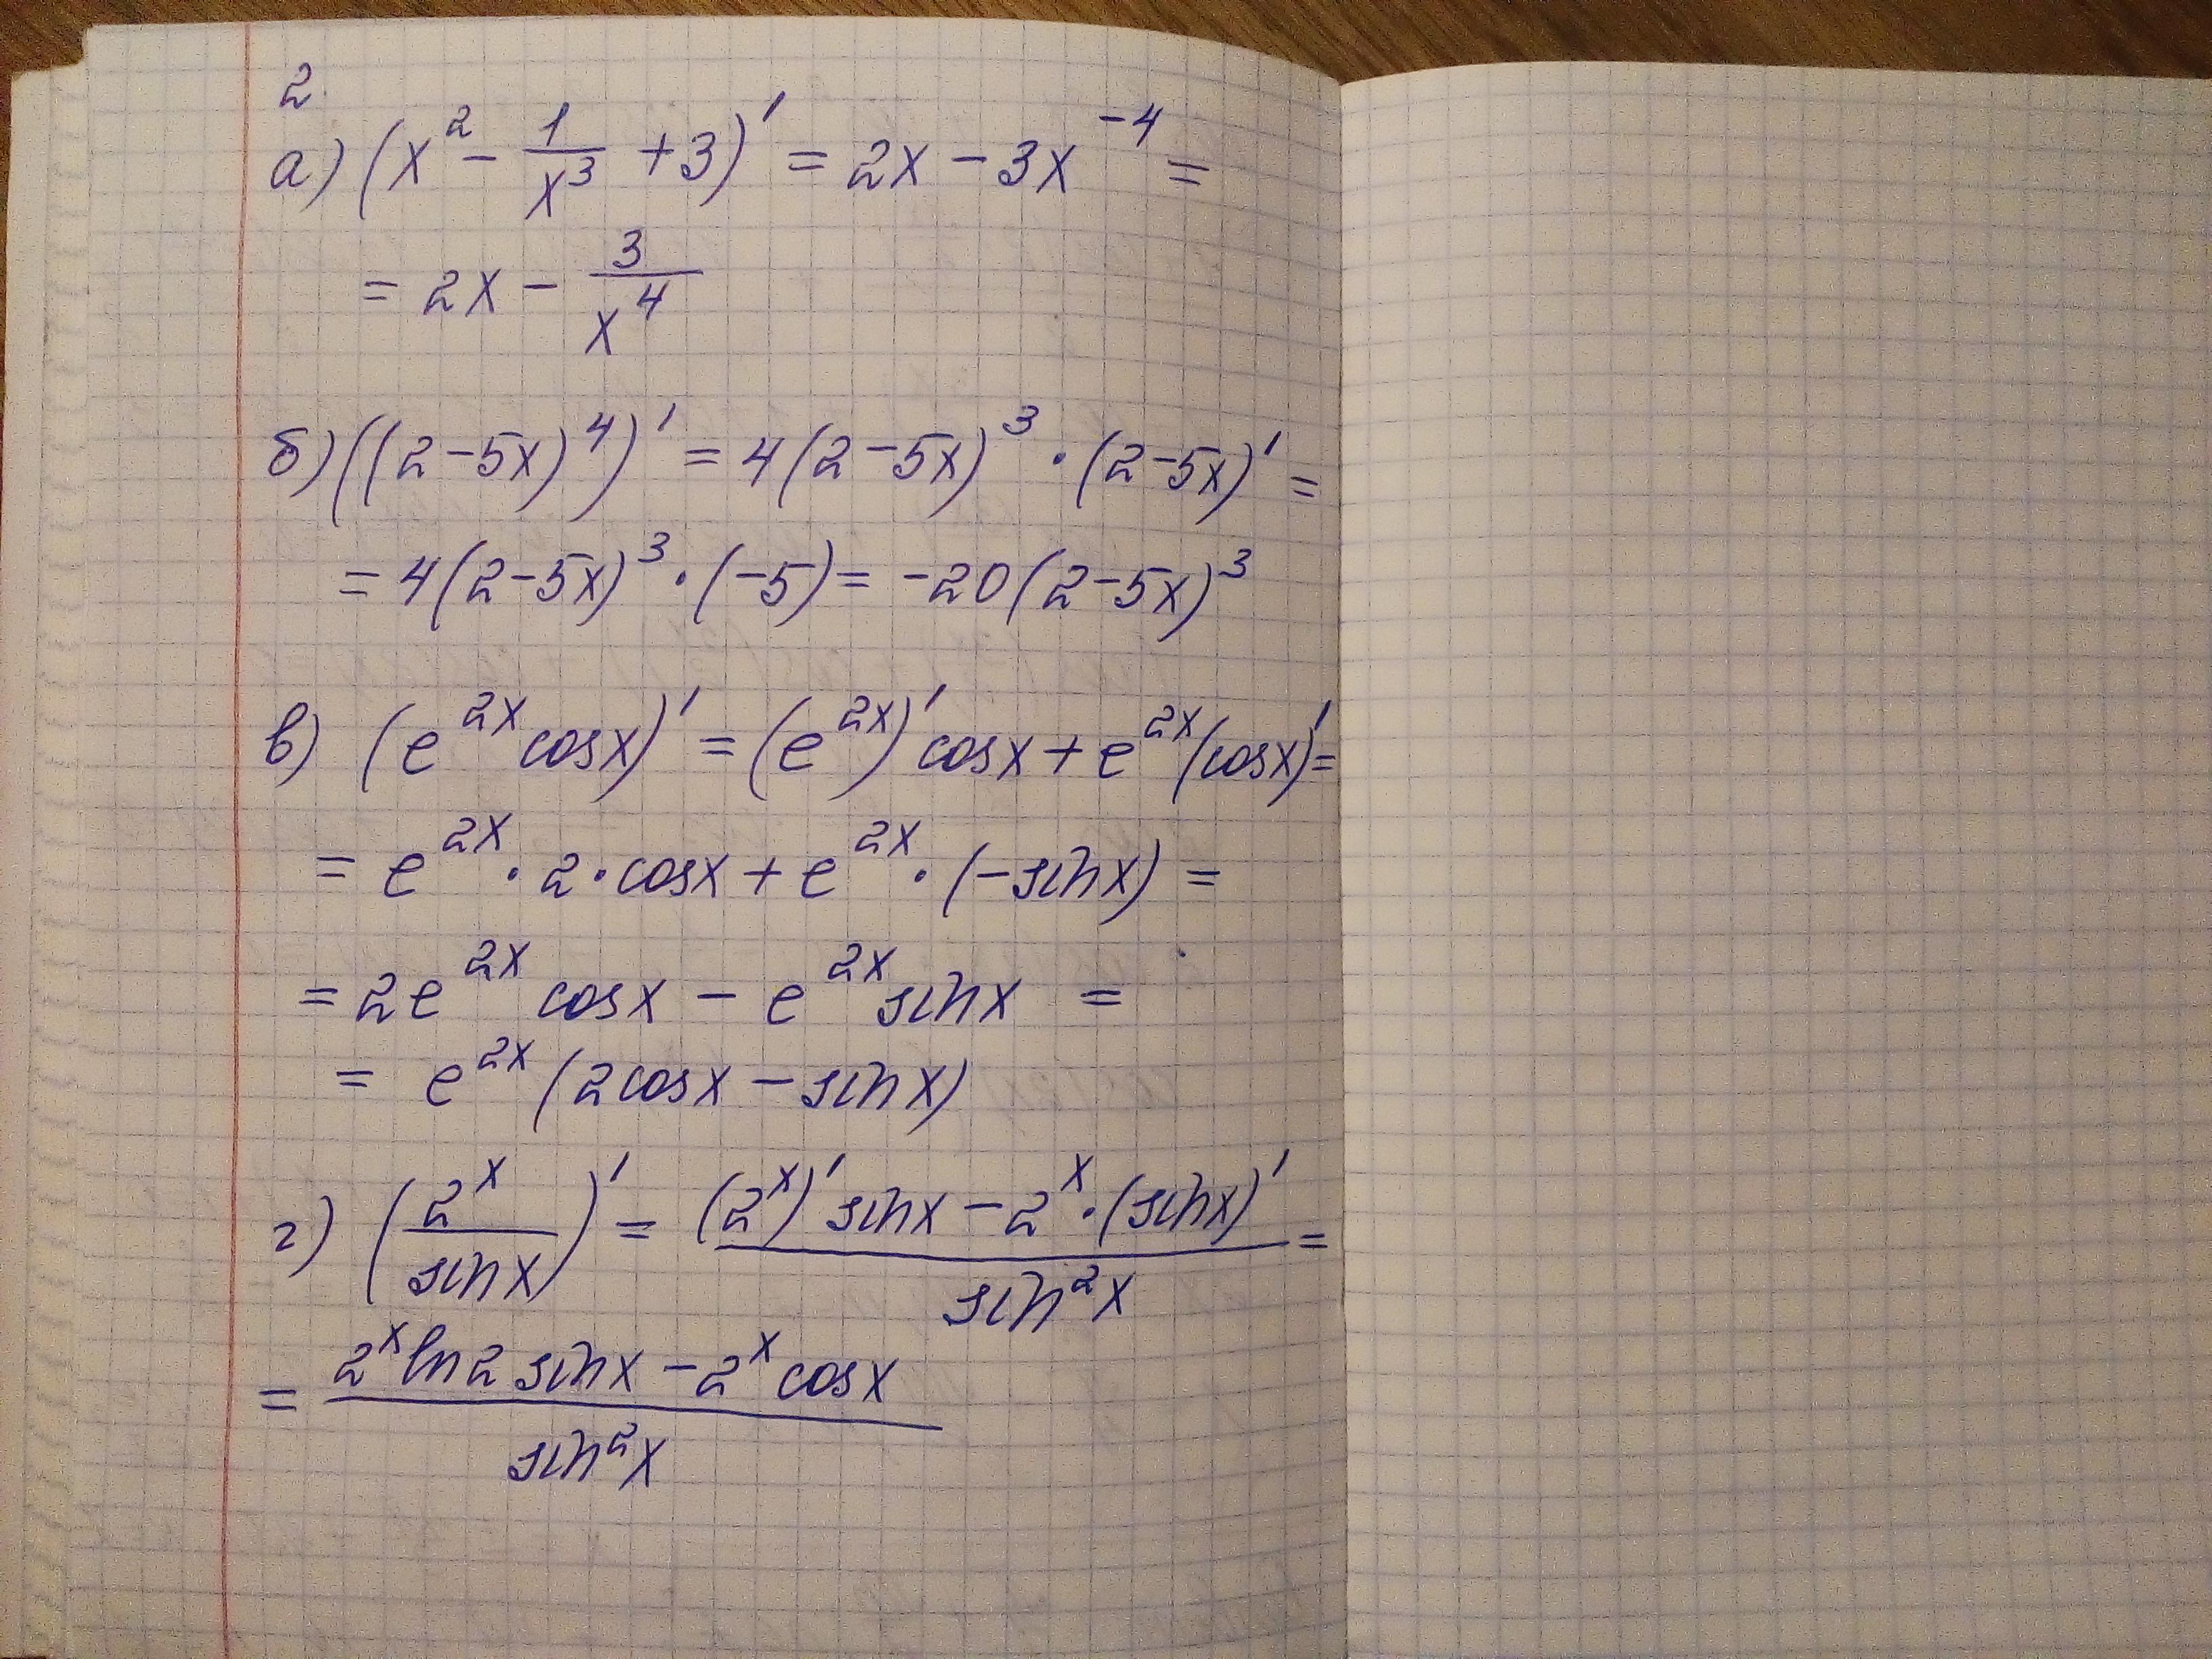 2.
а) (x² - 1/x³ + 3)' = 2x - 3x⁻⁴ =
= 2x - 3/x⁴
б) ((2-5x)⁴)' = 4(2-5x)³ · (2-5x)' =
= 4(2-5x)³ · (-5) = -20(2-5x)³
в) (e^{2x} cosx)' = (e^{2x})' cosx + e^{2x}(cosx)' =
= e^{2x} · 2 · cosx + e^{2x} · (-sinx) =
= 2e^{2x} cosx - e^{2x} sinx =
= e^{2x} (2cosx - sinx)
г) (2^x / sinx)' = ((2^x)' sinx - 2^x · (sinx)') / sin²x =
= (2^x ln2 sinx - 2^x cosx) / sin²x